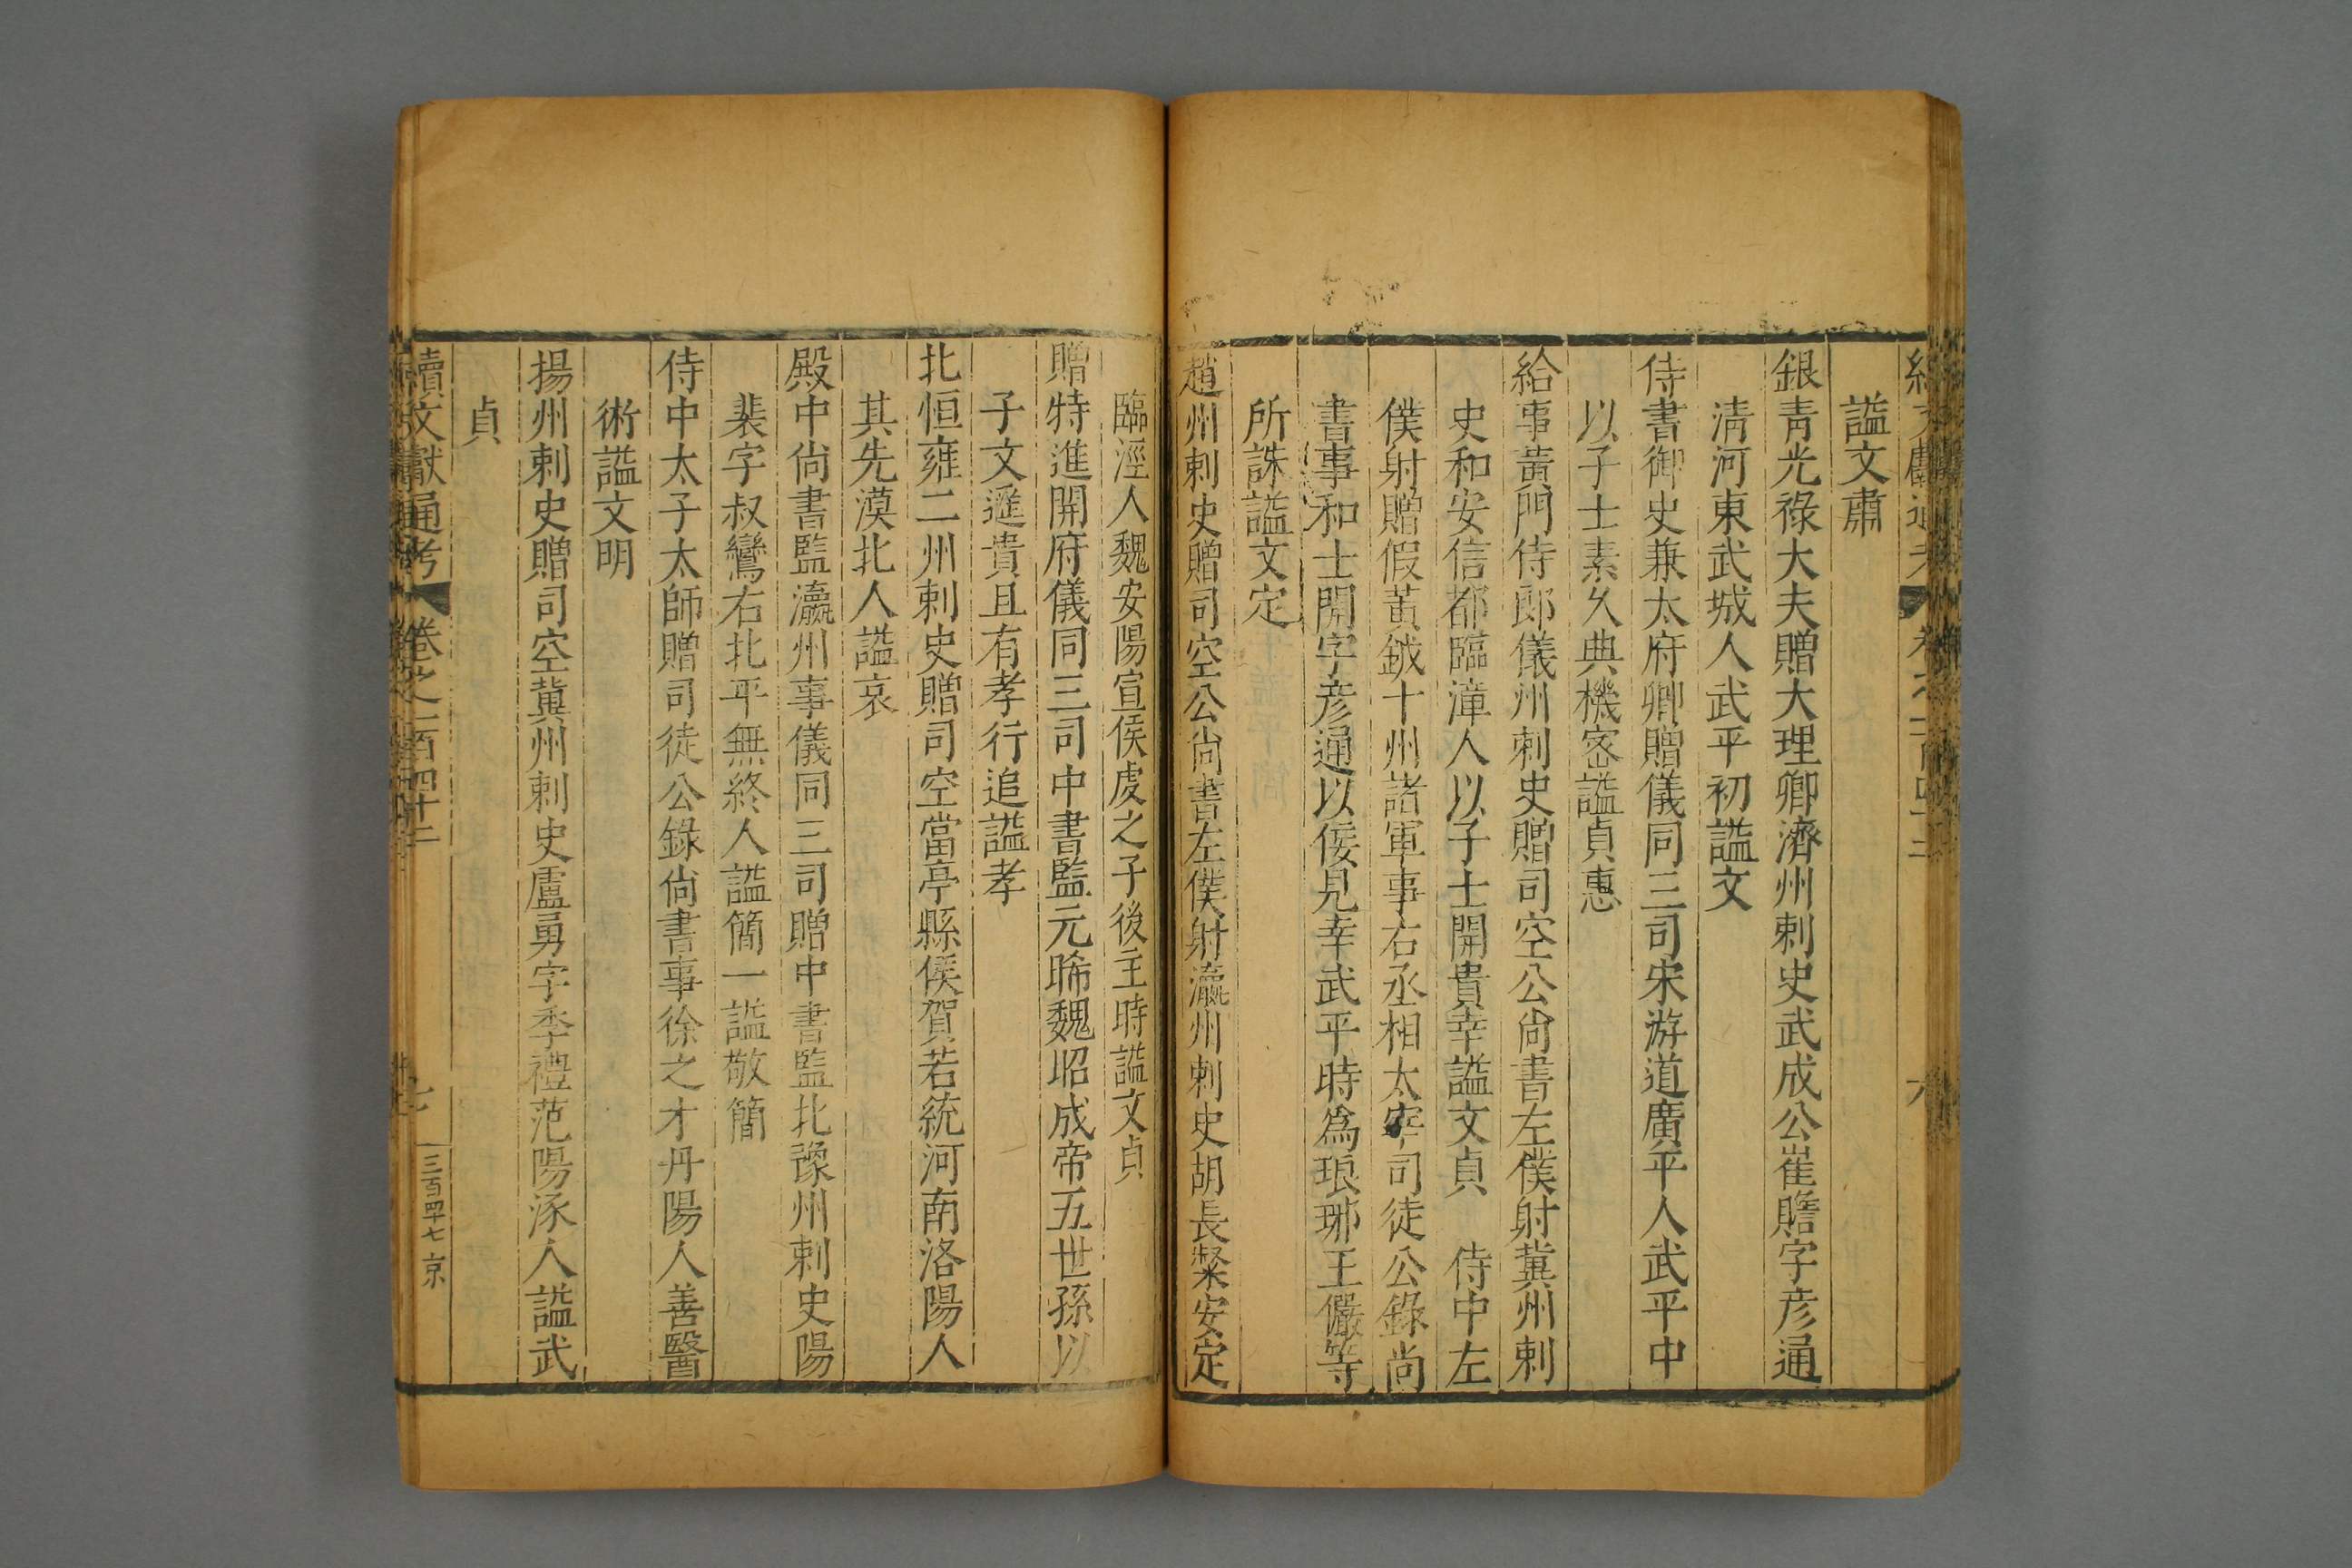 謚文肅
銀靑光祿大夫贈大理卿濟州刺史武成公崔贍字彦通
淸河東武城人武平初謚文
侍書御史兼太府卿贈儀同三司宋游道廣平人武平中
以子士素久典機宻謚貞惠
給事黃門侍郎儀州刺史贈司空公尙書左僕射冀州刺
史和安信都臨漳人以子士開貴幸謚文貞　侍中左
僕射贈假黃鉞十州諸軍事右丞相太宰司徒公錄尙
書事和士開字彦通以佞見幸武平時爲琅琊王儼等
所誅謚文定
趙州刺史贈司空公尙書左僕射瀛州刺史胡長粲安定
臨涇人魏安陽宣侯虔之子後主時謚文貞
贈特進開府儀同三司中書監元晞魏昭成帝五世孫以
子文遥貴且有孝行追謚孝
北恒雍二州刺史贈司空當亭縣侯賀若統河南洛陽人
其先漠北人謚哀
殿中尙書監瀛州事儀同三司贈中書監北豫州刺史陽
裴字叔鸞右北平無終人謚簡一謚敬簡
侍中太子太師贈司徒公錄尙書事徐之才丹陽人善醫
術謚文明
揚州刺史贈司空冀州刺史盧勇字季禮范陽涿人謚武
貞
續文獻通考　卷之一百四十二　七　三百四十七　京